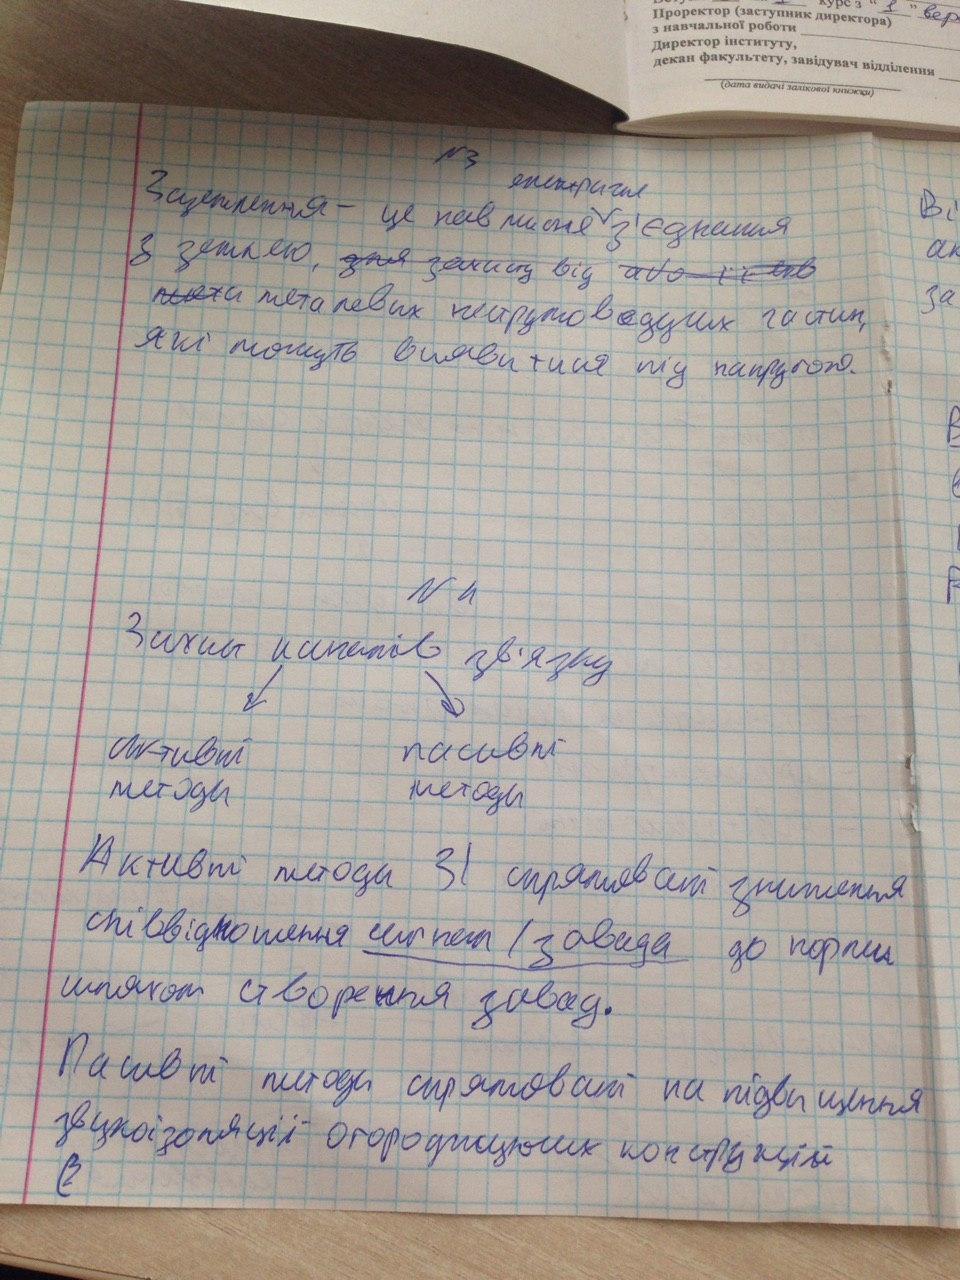 курс з " 1 " вер
Проректор (заступник директора)
з навчальної роботи
Директор інституту,
декан факультету, завідувач відділення
(дата видачі залікової книжки)
N3
електричне
Заземлення - це навмисне з'єднання
з землею, для захисту від
металевих неструмоведучих частин,
які можуть виявитися під напругою.
N4
Захист каналів зв'язку
активні пасивні
методи методи
Активні методи ЗІ спрямовані зниження
співвідношення сигнал/завада до норми
шляхом створення завад.
Пасивні методи спрямовані на підвищення
звукоізоляції огороджуючих конструкцій
Ві
ак
за
В
в